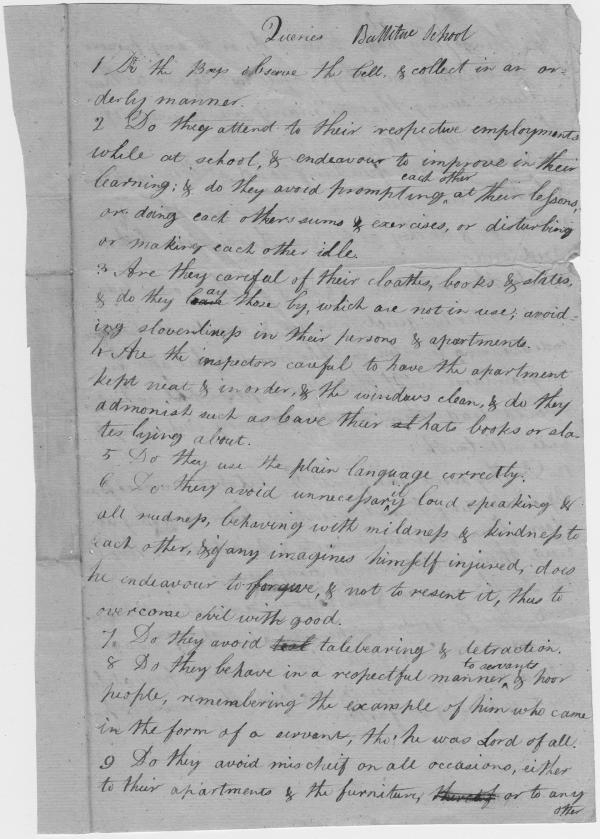 Queries Ballitore School
1 Do the Boys observe the bell, & collect in an or-
derly manner.
2 Do they attend to their respective employments
while at school, & endeavour to improve in their
each other
learning; & do they avoid prompting at their lessons,
or doing each others sums & exercises, or disturbing
or making each other idle.
3 Are they careful of their cloaths, books & slates,
ay
& do they leave those by, which are not in use; avoid-
ing slovenliness in their persons & apartments.
4 Are the inspectors careful to have the apartment
kept neat & in order, & the windows clean, & do they
admonish such as leave their hats books or sla-
tes lying about.
5 Do they use the plain language correctly.
6 Do they avoid unnecessary loud speaking &
all rudness, behaving with mildness & kindness to
each other, & if any imagines himself injured, does
he endeavour to forgive, & not to resent it, thus to
overcome evil with good.
7. Do they avoid talebearing & detraction.
to servants
8 Do they behave in a respectful manner & poor
people, remembering the example of him who came
in the form of a servant, tho' he was Lord of all.
9 Do they avoid mischeif on all occasions, either
to their apartments & the furniture, or to any
other